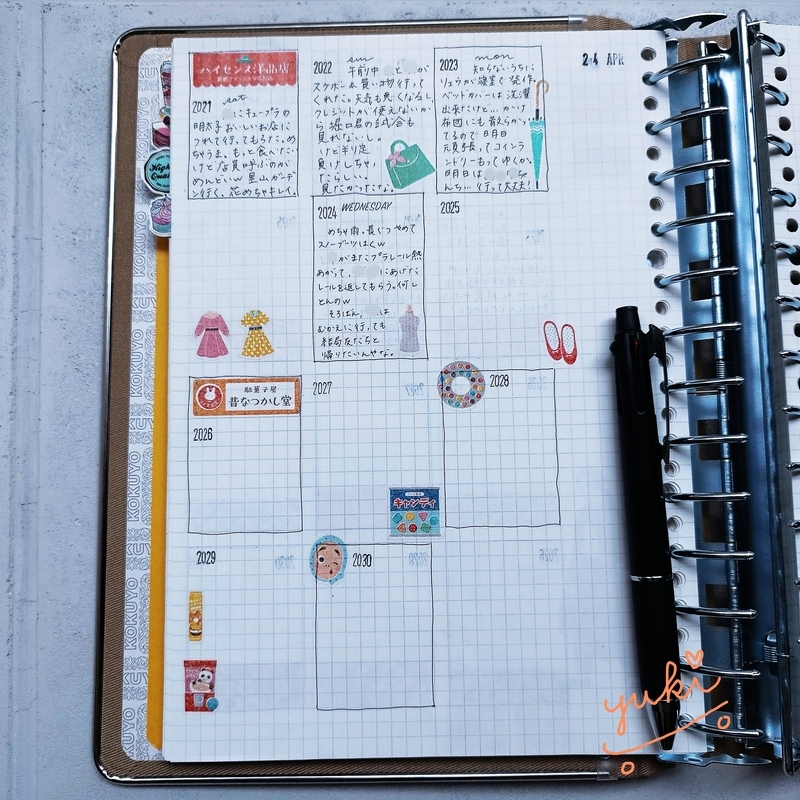 24 APR
ハイセンス洋品店
2021 sat
にキューブラの
明太子おいしいお店に
つれて行ってもろた。め
ちゃうま。もっと食べたい
けど店員呼ぶのが
めんどいw 里山ガーデ
ン行く。花めちゃキレイ。
2022 sun
午前中 と が
スケボー&買い物行って
くれた。天気も良くなるし、
クレジットが使えないか
ら堀口君の試合も
見れないし。
けど判定
負けしちゃっ
たらしい。
見たかったな。
2023 mon
知らないうちに
リュウが寝室で発作。
ベッドカバーは洗濯
出来たけど…かけ
布団にも散らかっ
てるので明日
元気残ってコインラ
ンドリーもってゆくか。
明日は ちゃ
んち…行って大丈夫?
2024 WEDNESDAY
めちゃ雨。長ぐつやめて
スノーブーツはくw
がまたプラレール熱
あがって、 にあげた
レールを返してもらう。何し
とんのw
そろばん、 は
むかえに行っても
結局友だちと
帰りたいんやな。
2025
駄菓子屋
昔なつかし堂
2026
2027
2028
キャンディ
2029
2030
KOKUYO
KOKUYO
KOKUYO
KOKUYO
yuki